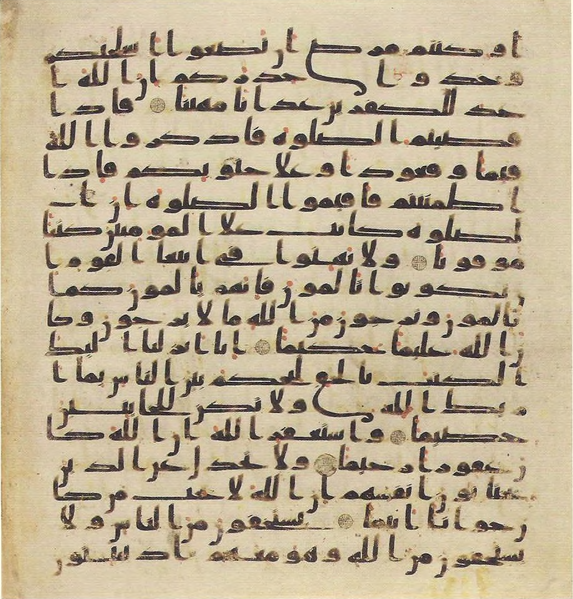 او كنتم مرضى ان تضعوا اسلحتكم
وخذوا حذركم ان الله ا
عد للكفرين عذابا مهينا ۝ فاذا
قضيتم الصلوه فاذكروا الله
قيما وقعودا وعلى جنوبكم فاذا
اطمننتم فاقيموا الصلوه ان ا
لصلوه كانت على المومنين كتبا
موقوتا ۝ ولا تهنوا في ابتغا القوم ا
ن تكونوا تالمون فانهم يالمون كما
تالمون وترجون من الله ما لا يرجون وكا
ن الله عليما حكيما ۝ انا انزلنا اليك
الكتب بالحق لتحكم بين الناس بما ا
ريك الله ولا تكن للخاينين
خصيما ۝ واستغفر الله ان الله كا
ن غفورا رحيما ۝ ولا تجدل عن الذين
يختانون انفسهم ان الله لا يحب من كا
ن خوانا اثيما ۝ يستخفون من الناس ولا
يستخفون من الله وهو معهم اذ يبيتون